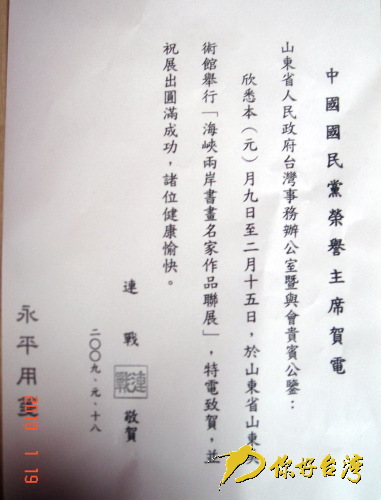 中國國民黨榮譽主席賀電
山東省人民政府台灣事務辦公室暨與會貴賓公鑒：
欣悉本（元）月九日至二月十五日，於山東省山東美
術館舉行「海峽兩岸書畫名家作品聯展」，特電致賀，並
祝展出圓滿成功，諸位健康愉快。
連戰
連戰
敬賀
二〇〇九．元．十八
永平用箋
你好台湾